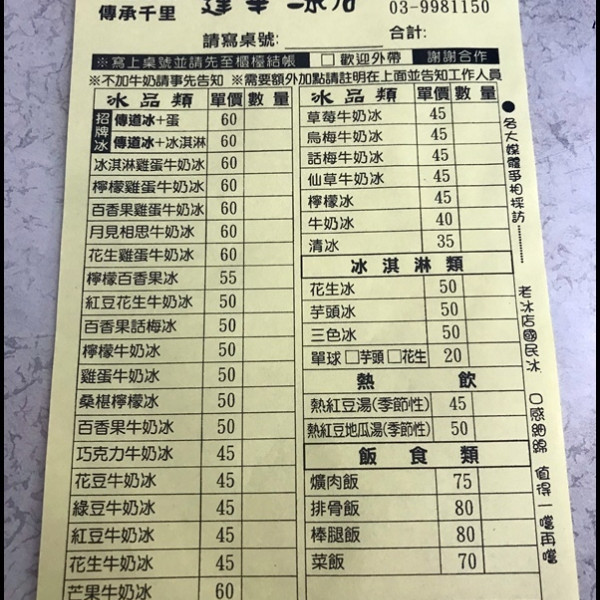 傳承千里
冰店
03-9981150
請寫桌號:
合計:
※寫上桌號並請先至櫃檯結帳
□ 歡迎外帶
謝謝合作
※不加牛奶請事先告知 ※需要額外加點請註明在上面並告知工作人員
冰品類 單價 數量
招牌冰
傳道冰+蛋 60
傳道冰+冰淇淋 60
冰淇淋雞蛋牛奶冰 60
檸檬雞蛋牛奶冰 60
百香果雞蛋牛奶冰 60
月見相思牛奶冰 60
花生雞蛋牛奶冰 60
檸檬百香果冰 55
紅豆花生牛奶冰 50
百香果話梅冰 50
檸檬牛奶冰 50
雞蛋牛奶冰 50
桑椹檸檬冰 50
百香果牛奶冰 50
巧克力牛奶冰 45
花豆牛奶冰 45
綠豆牛奶冰 45
紅豆牛奶冰 45
花生牛奶冰 45
芒果牛奶冰 60
冰品類 單價 數量
草莓牛奶冰 45
烏梅牛奶冰 45
話梅牛奶冰 45
仙草牛奶冰 45
檸檬冰 45
牛奶冰 40
清冰 35
冰淇淋類
花生冰 50
芋頭冰 50
三色冰 50
單球 □芋頭 □花生 20
熱飲
熱紅豆湯(季節性) 45
熱紅豆地瓜湯(季節性) 50
飯食類
爌肉飯 75
排骨飯 80
棒腿飯 80
菜飯 70
●各大媒體爭相採訪………
老冰店國民冰
口感細綿 值得一嚐再嚐